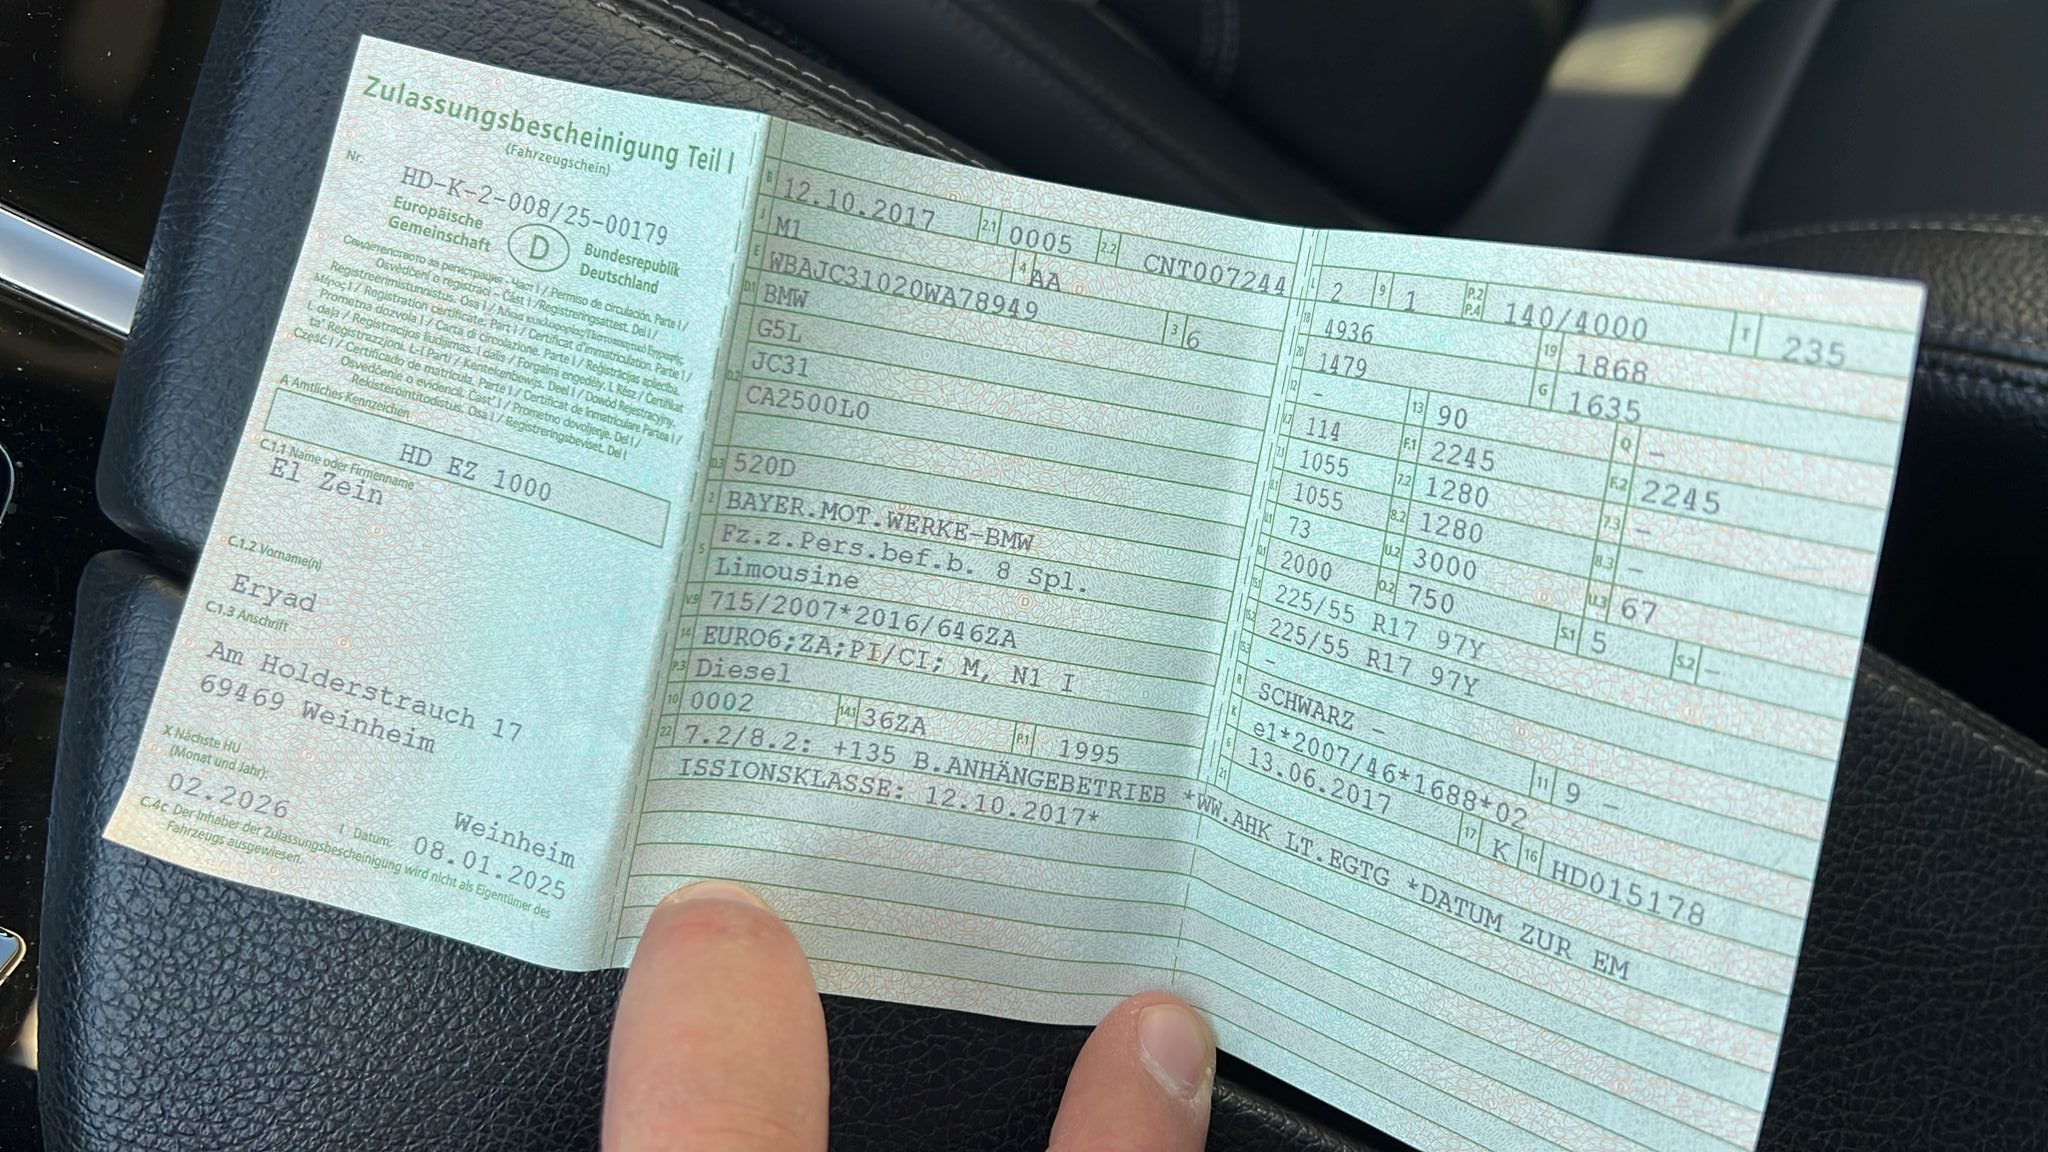 Zulassungsbescheinigung Teil I
(Fahrzeugschein)
Nr.
HD-K-2-008/25-00179
Europäische
Gemeinschaft
D
Bundesrepublik
Deutschland
Свидетелство за регистрация. Част I / Permiso de circulación. Parte I /
Osvědčení o registraci - Část I / Registreringsattest. Del I /
Registreerimistunnistus. Osa I /
Μέρος I / Registration certificate. Part I / Certificat d'immatriculation. Partie I /
Prometna dozvola I / Carta di circolazione. Parte I / Reģistrācijas apliecība.
I. daļa / Registracijos liudijimas. I dalis / Forgalmi engedély. I. Rész / Ċertifikat
ta' Reġistrazzjoni. L-I Parti / Kentekenbewijs. Deel I / Dowód Rejestracyjny.
Część I / Certificado de matrícula. Parte I / Certificat de înmatriculare Partea I /
Osvedčenie o evidencii. Časť I / Prometno dovoljenje. Del I /
Rekisteröintitodistus. Osa I / Registreringsbeviset. Del I
A Amtliches Kennzeichen
HD EZ 1000
C.1.1 Name oder Firmenname
El Zein
C.1.2 Vorname(n)
Eryad
C.1.3 Anschrift
Am Holderstrauch 17
69469 Weinheim
X Nächste HU
(Monat und Jahr):
02.2026
Weinheim
I Datum: 08.01.2025
C.4c Der Inhaber der Zulassungsbescheinigung wird nicht als Eigentümer des
Fahrzeugs ausgewiesen.
B 12.10.2017 2.1 0005 2.2 CNT007244
J M1 4 AA
E WBAJC31020WA78949 3 6
D.1 BMW
G5L
D.2 JC31
CA2500L0
D.3 520D
2 BAYER.MOT.WERKE-BMW
5 Fz.z.Pers.bef.b. 8 Spl.
Limousine
V.9 715/2007*2016/646ZA
14 EURO6;ZA;PI/CI; M, N1 I
P.3 Diesel
10 0002 14.1 36ZA P.1 1995
22 7.2/8.2: +135 B.ANHÄNGEBETRIEB *WW.AHK LT.EGTG *DATUM ZUR EM
ISSIONSKLASSE: 12.10.2017*
L 2 9 1 P.2 P.4 140/4000 T 235
18 4936 19 1868
20 1479 G 1635
12 - 13 90 Q -
V.7 114 F.1 2245 F.2 2245
7.1 1055 7.2 1280 7.3 -
8.1 1055 8.2 1280 8.3 -
U.1 73 U.2 3000 U.3 67
O.1 2000 O.2 750 S.1 5 S.2 -
15.1 225/55 R17 97Y
15.2 225/55 R17 97Y
15.3 -
R SCHWARZ - 11 9 -
K e1*2007/46*1688*02
6 13.06.2017 17 K 16 HD015178
21